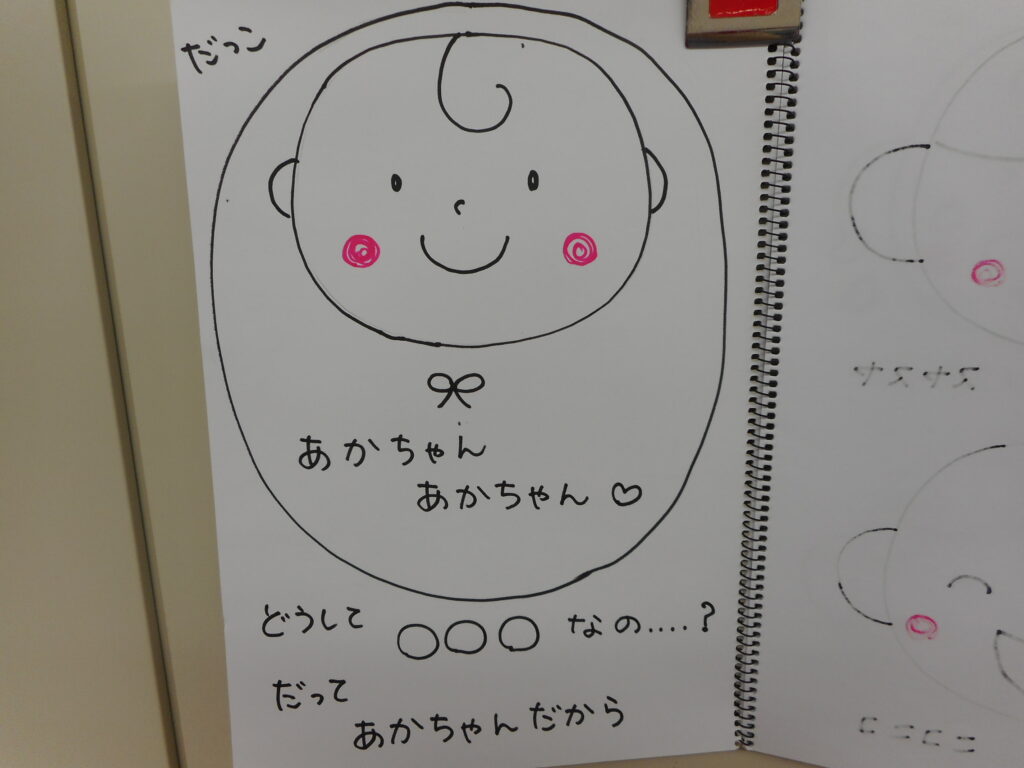 だっこ
あかちゃん
あかちゃん♡
どうして ○○○ なの....?
だって
あかちゃんだから
ニコニコ